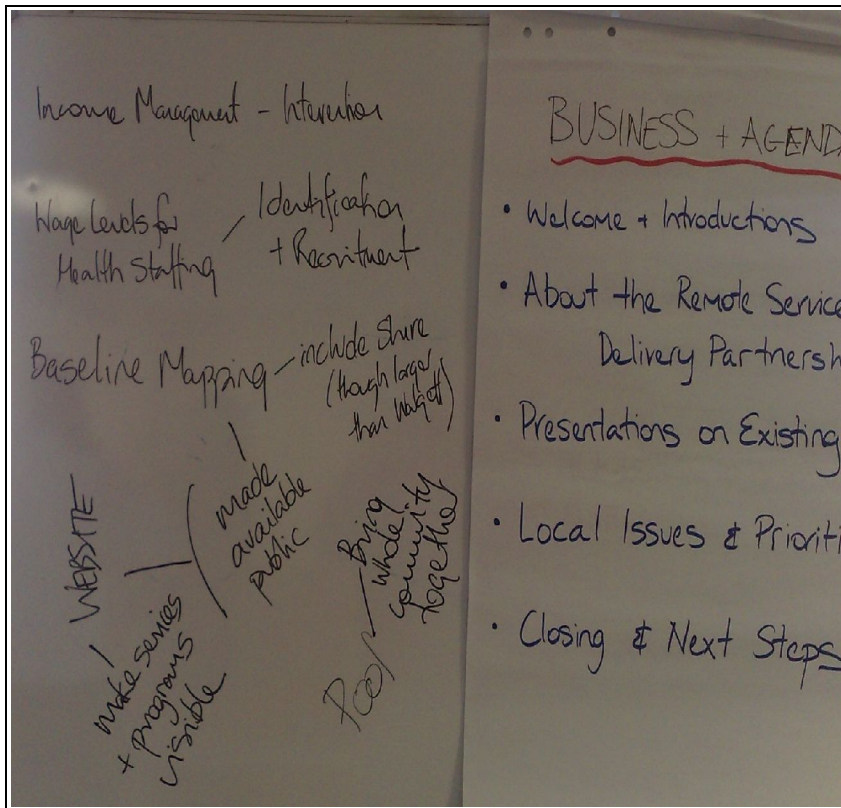 Income Management - Intervention
Wage Levels for
Health Staffing
Identification
+ Recruitment
Baseline Mapping
include Shire
(though larger
than Walgett)
made
available
public
WEBSITE
make services
+ programs
visible
Pool
Bring
whole
community
together
BUSINESS + AGEND
• Welcome + Introductions
• About the Remote Service
Delivery Partnersh
• Presentations on Existing
• Local Issues & Prioriti
• Closing & Next Steps